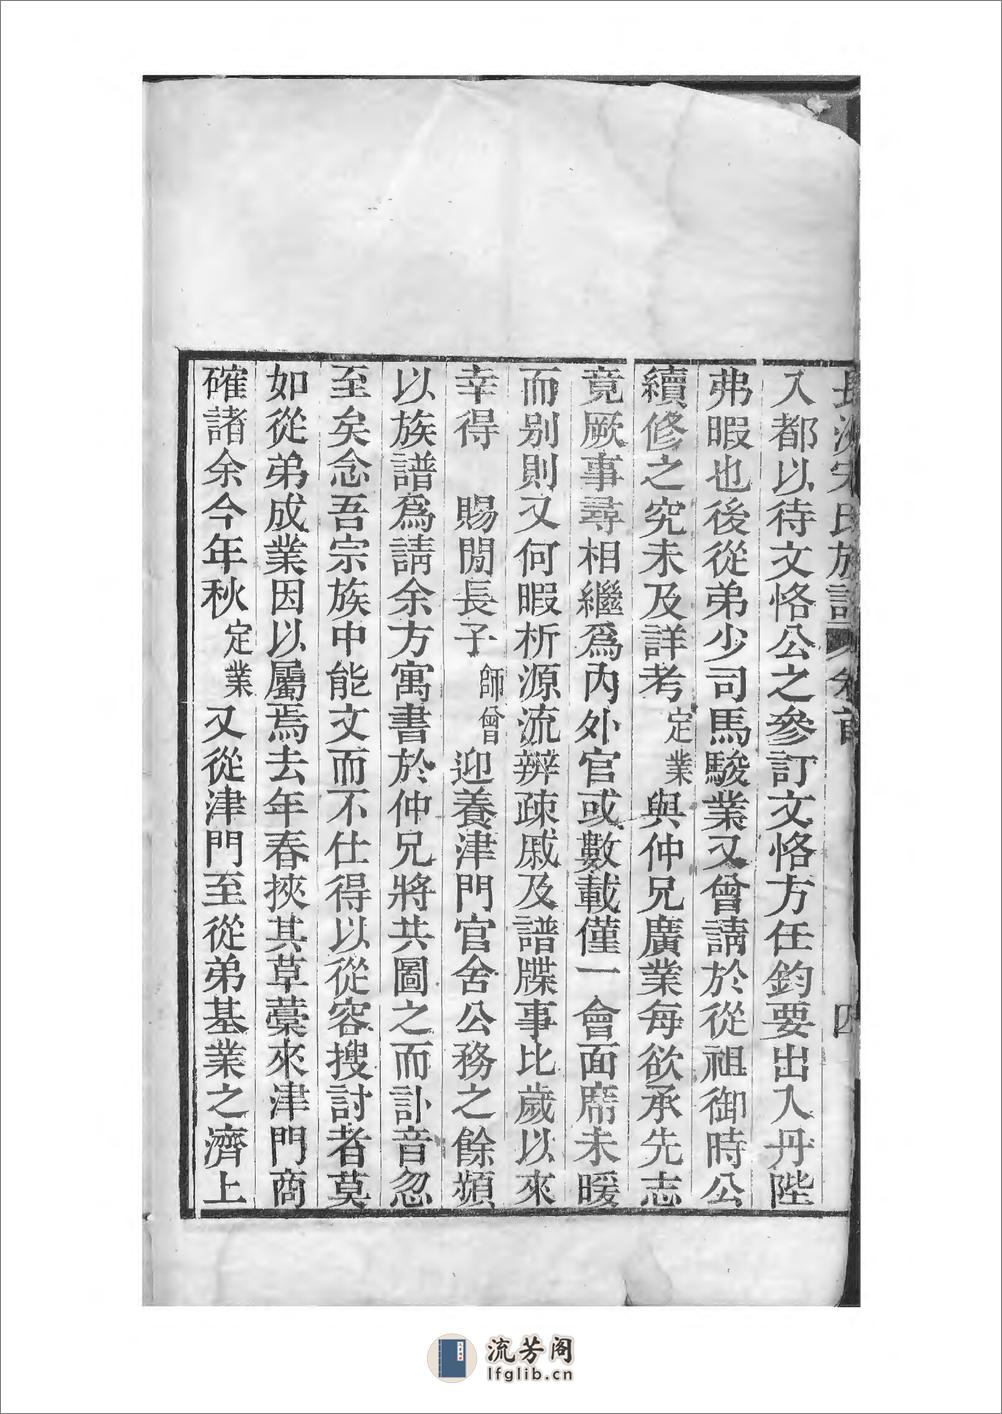 長洲宋氏族譜 卷首 四
入都以待文恪公之參訂文恪方任鈞要出入丹陛
弗暇也後從弟少司馬駿業又曾請於從祖御時公
續修之究未及詳考定業與仲兄廣業每欲承先志
竟厥事尋相繼爲內外官或數載僅一會面席未暖
而別則又何暇析源流辨疎戚及譜牒事比歲以來
幸得 賜閒長子師曾迎養津門官舍公務之餘頻
以族譜爲請余方寓書於仲兄將共圖之而訃音忽
至矣念吾宗族中能文而不仕得以從容搜討者莫
如從弟成業因以屬焉去年春挾其草藁來津門商
確諸余今年秋定業又從津門至從弟基業之濟上
流芳阁
lfglib.cn